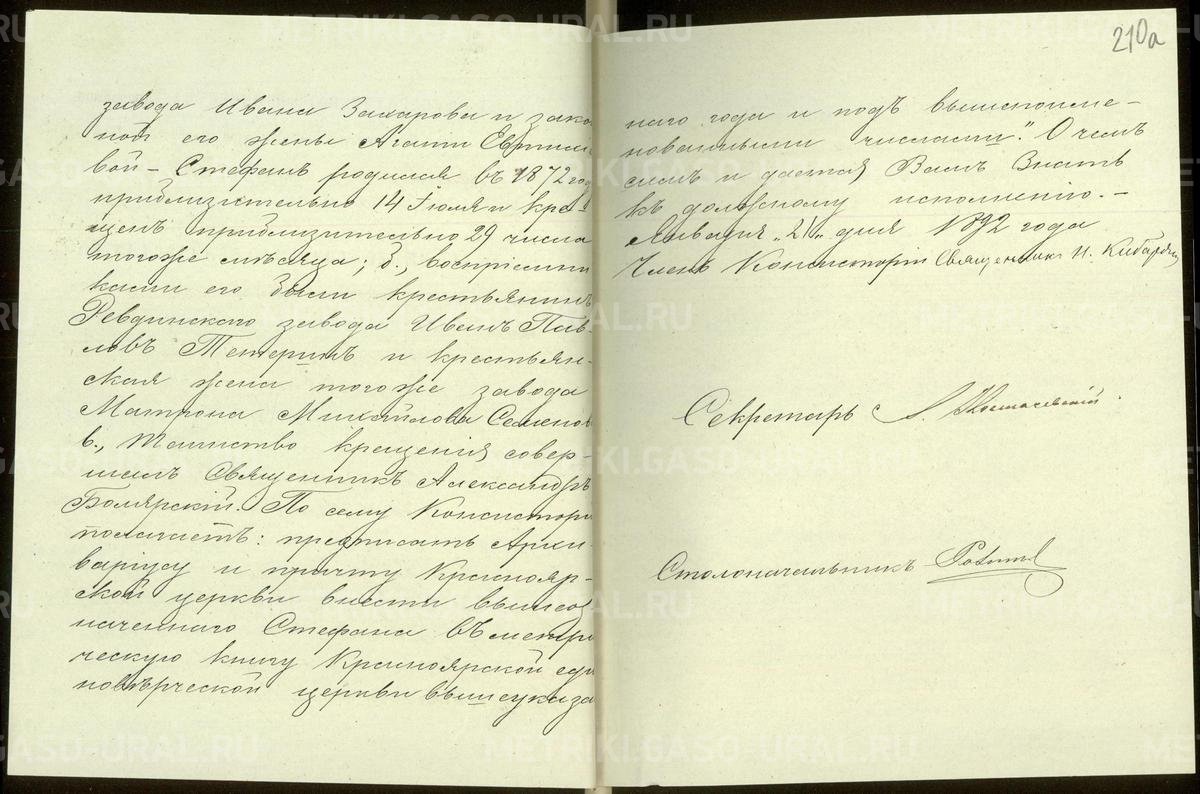 210а
завода Ивана Захарова и зако
ной его жены Агаѳiи Евѳимо
вой – Стефанъ родился въ 1872 год
приблизительно 14 Iюля и кре-
щенъ приблизительно 29 числа
тогоже мѣсяца; б., воспріемни
ками его были крестьянинъ
Ревдинскаго завода Иванъ Пав-
ловъ Тетеринъ и крестьян-
ская жена тогоже завода
Матрона Михайлова Семенов
в., таинство крещенія совер-
шалъ Священникъ Александръ
Боярскій. По сему Консисторі
полагаетъ: предписать Архи-
варіусу и причту Краснояр-
ской церкви внести вышео
наченнаго Стефана въ метри
ческую книгу Красноярской еди
новѣрческой церкви вышеуказа
наго года и подъ вышепоиме-
нованными числами." О чемъ
симъ и дается Вамъ знать
къ должному исполненію. –
Января „21„ дня 1892 года
Членъ Консисторіи Священникъ И. Кибардин
Секретарь
Столоначальникъ
METRIKI.GASO-URAL.RU